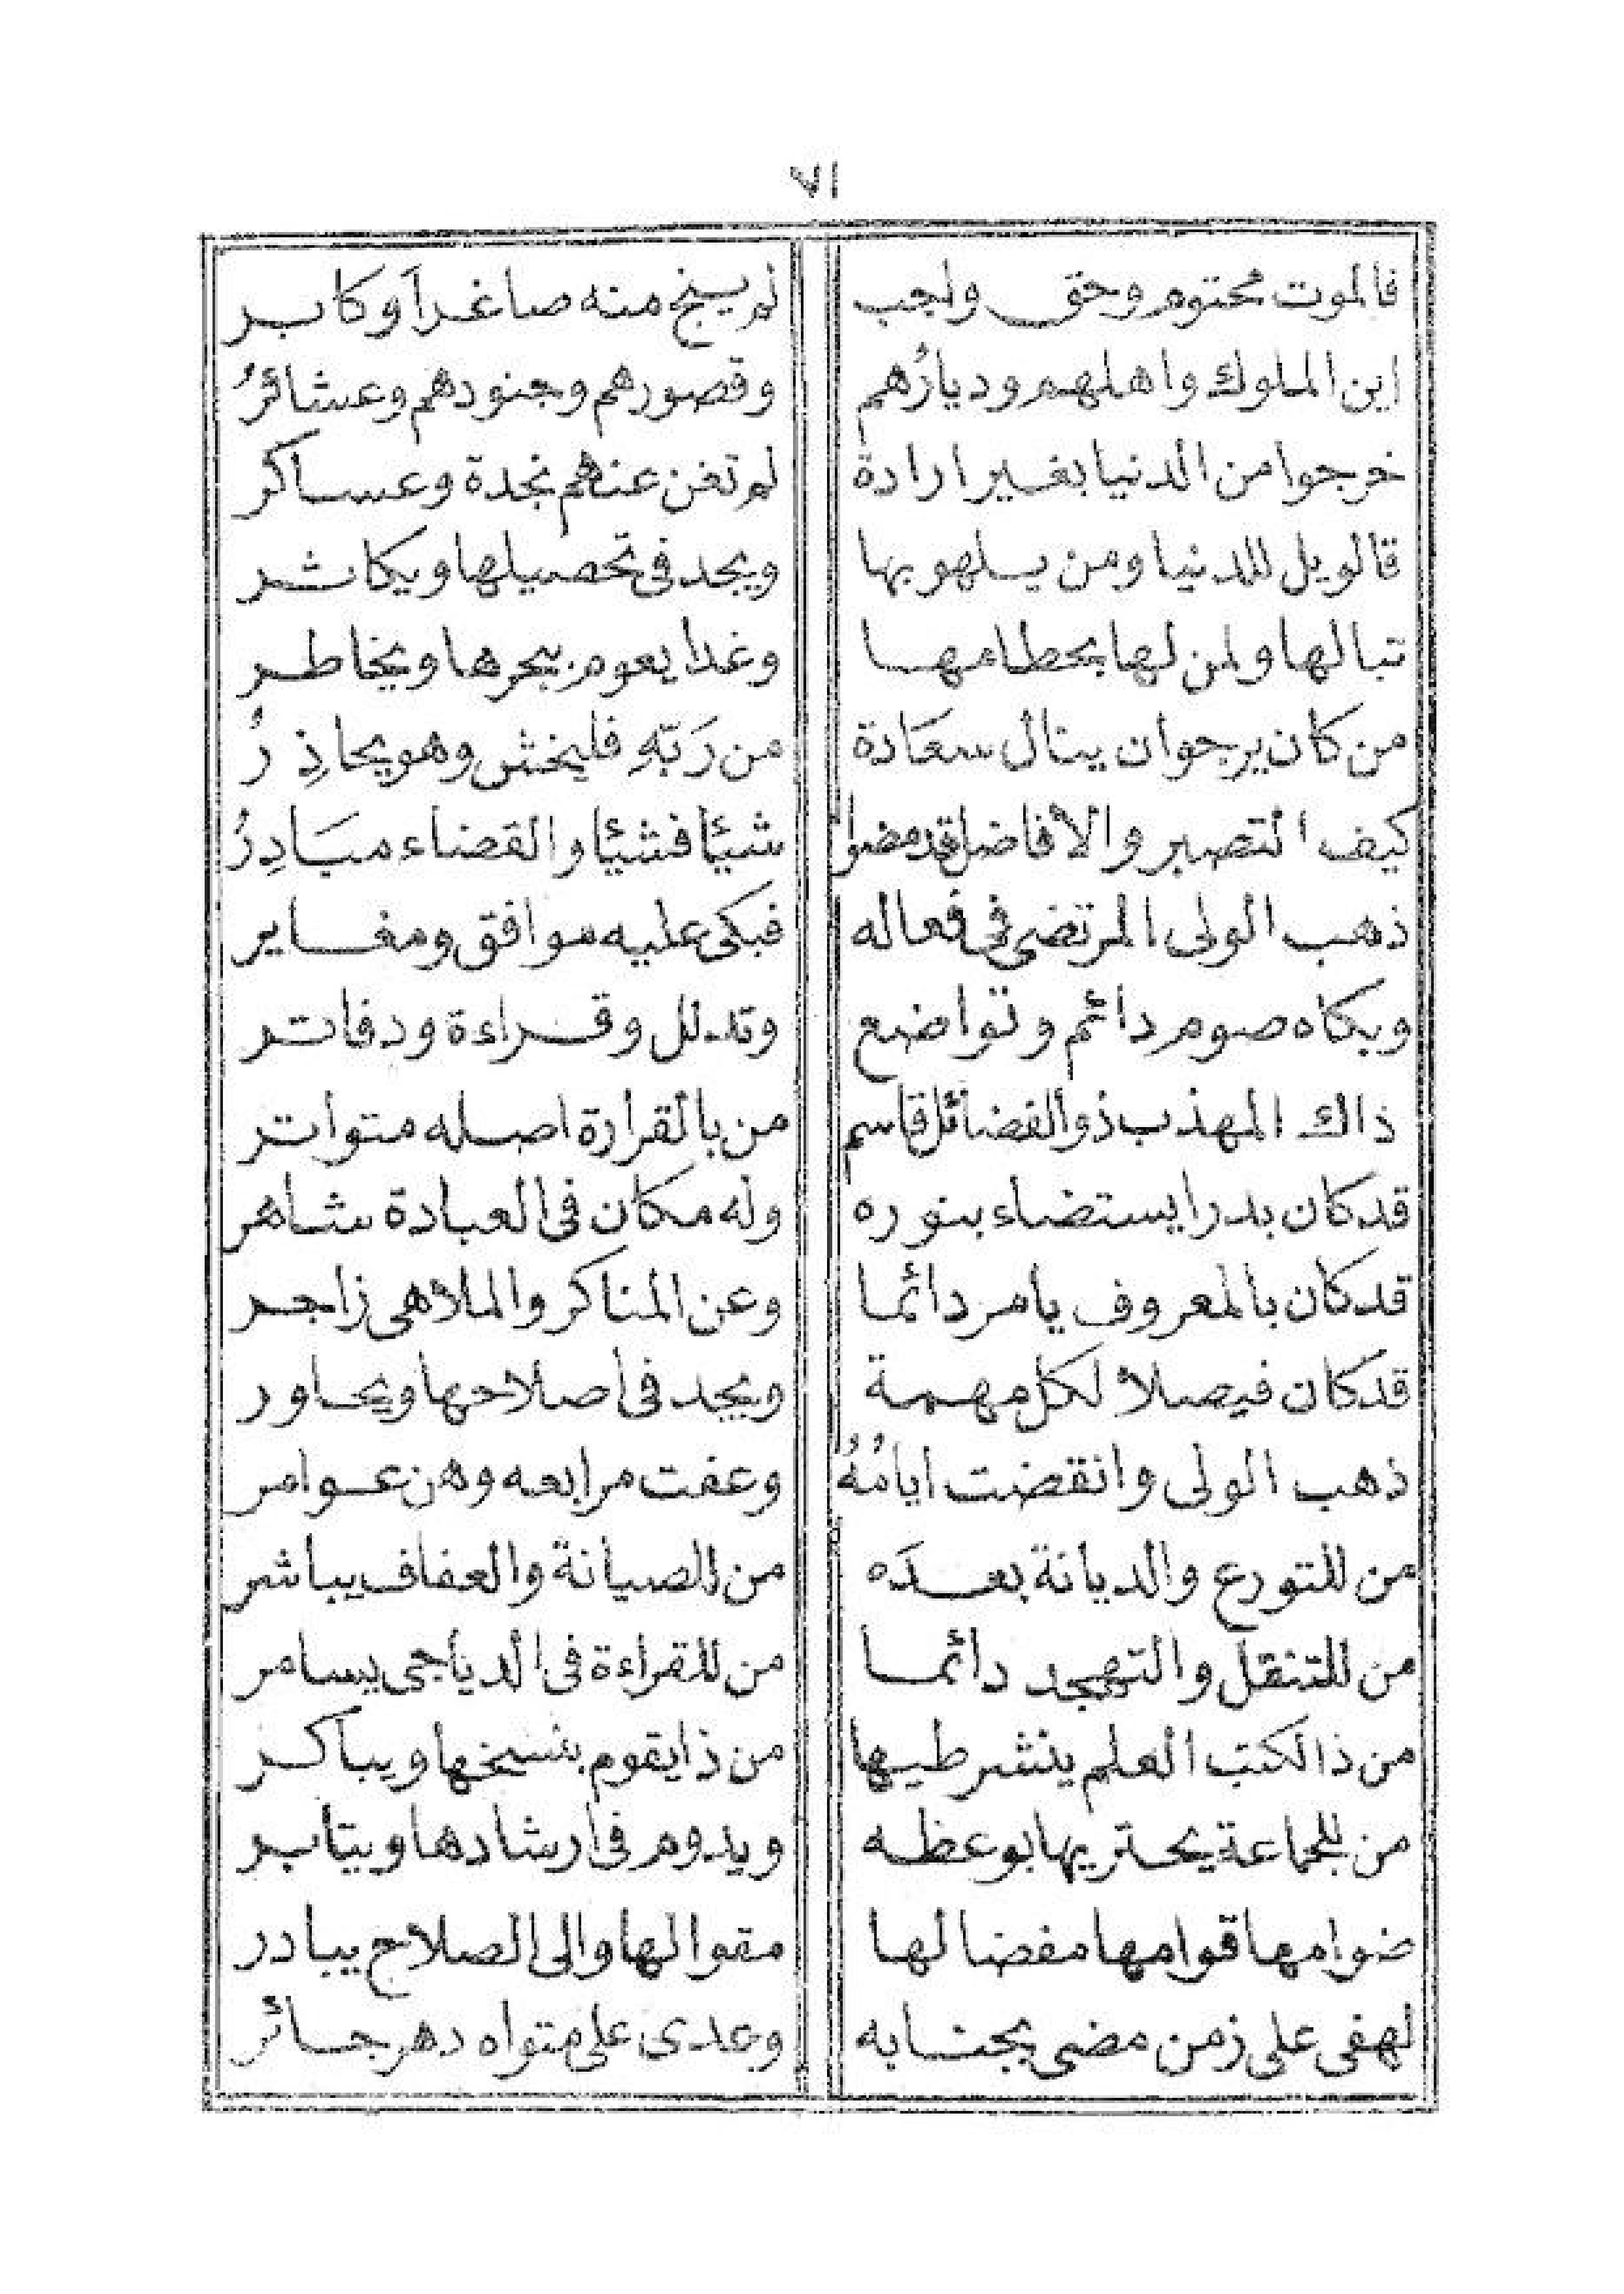 ٧١
فالموت محتوم وحق واجب لم ينج منه صاغرا وكابر
اين الملوك واهلهم وديارُهم وقصورهم وجنودهم وعشائرُ
خرجوا من الدنيا بغير ارادة لم تغن عنهم نجدة وعساكر
قالويل للدنيا ومن يسلهو بها ويجد فى تحصيلها ويكاثر
تبا لها ولمن لها بحطامها وغدا يعوم ببحرها ويخاطر
من كان يرجوان ينال سعَادة من رَبّهِ فليخش وهو يحاذِرُ
كيف التصبر والأفاضل قد مضوا شيئا فشيئا والقضاء مبَادِرُ
ذهب الولى المرتضى فى فعاله فبكى عليه موافق ومغاير
وبكاه صوم دائم وتواضع وتدلل وقراءة ودفاتر
ذاك المهذب ذو الفضائل قاسم من بالقرارة اصله متواتر
قدكان بدرا يستضاء بنوره وله مكان فى العبادة شاهر
قدكان بالمعروف يامر دائما وعن المناكر والملاهى زاجر
قدكان فيصلا لكل مهمة ويجد فى اصلاحها ويحاور
ذهب الولى وانقضت ايامُهُ وعفت مرابعه وهن عوامر
من للتورع والديانة بعدَه من للصيانة والعفاف يباشر
من للتنقل والتهجد دائما من للقراءة فى الدياجى يسامر
من ذا لكتب العلم ينشر طيها من ذا يقوم بنسخها ويباكر
من للجماعة يحتريها بوعظه ويدوم فى ارشادها ويتابر
ضوامها قوامها مفضالها مقوالها والى الصلاح يبادر
لهفى على زمن مضى بجنابه وعدى على متواه دهر جائر